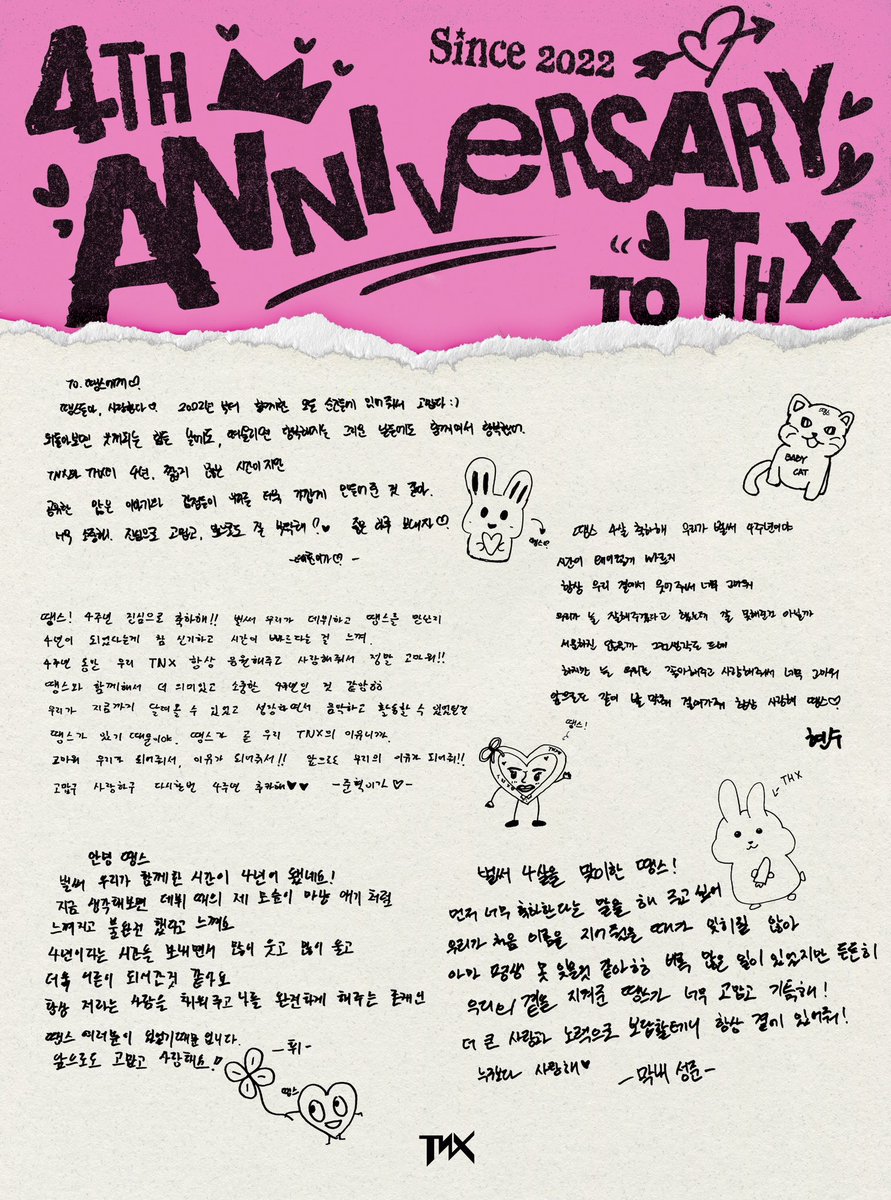 4TH
Since 2022
ANNIVERSARY
TO THX
To. 땡스에게♡
땡스들아, 사랑한다♡ 2022년 부터 함께한 모든 순간들에 있어줘서 고맙다 :)
뒤돌아보면 힘든 날에도, 떠올리면 행복해지는 그리운 날들에도 함께여서 행복했어.
TNX와 THX의 4년, 짧지 않은 시간이지만
공유한 많은 이야기와 감정들이 우리를 더욱 가깝게 만들어 준 것 같아.
너무 소중해. 진심으로 고맙고, 앞으로도 잘 부탁해!♥ 좋은 하루 보내자♡
-태훈이가♡-
땡스♡
땡스
BABY
CAT
땡스 4살 축하해 우리가 벌써 4주년이야
시간이 빠르지
항상 우리 곁에서 있어줘서 너무 고마워
우리가 늘 잘해주겠다고 했는데 잘 못해준건 아닐까
서운하진 않을까 그런생각도 드네
하지만 늘 우리를 좋아해주고 사랑해줘서 너무 고마워
앞으로도 같이 발 맞춰 걸어가줘 항상 사랑해 땡스♡
현수
땡스! 4주년 진심으로 축하해!! 벌써 우리가 데뷔하고 땡스를 만난지
4년이 되었다는게 참 신기하고 시간이 빠르다는 걸 느껴.
4주년 동안 우리 TNX 항상 응원해주고 사랑해줘서 정말 고마워!!
땡스와 함께해서 더 의미있고 소중한 4주년인 것 같아ㅎㅎ
우리가 지금까지 달려올 수 있었고 성장하면서 음악하고 활동할 수 있었던건
땡스가 있기 때문이야. 땡스가 곧 우리 TNX의 이유니까.
고마워 우리가 되어줘서, 이유가 되어줘서!! 앞으로도 우리의 이유가 되어줘!!
고맙구 사랑하구 다시한번 4주년 축하해♥♥ -준혁이가♡-
땡스!
THX
안녕 땡스
벌써 우리가 함께한 시간이 4년이 됐네요!
지금 생각해보면 데뷔 때의 제 모습이 마냥 애기처럼
느껴지고 불완전 했다고 느껴요
4년이라는 시간을 보내면서 많이 웃고 많이 울고
더욱 어른이 되어간것 같아요
항상 저라는 사람을 채워주고 나를 완전하게 해주는 존재인
땡스 여러분이 있었기때문 입니다.
앞으로도 고맙고 사랑해요!
-휘-
땡스
벌써 4살을 맞이한 땡스!
먼저 너무 축하한다는 말을 해 주고 싶어
우리가 처음 이름을 지어줬을 때가 잊히질 않아
아마 평생 못 잊을것 같아ㅎㅎ 비록 많은 일이 있었지만 든든히
우리의 곁을 지켜준 땡스가 너무 고맙고 기특해!
더 큰 사랑과 노력으로 보답할테니 항상 곁에 있어줘!
누구보다 사랑해♥
-막내 성준-
TNX